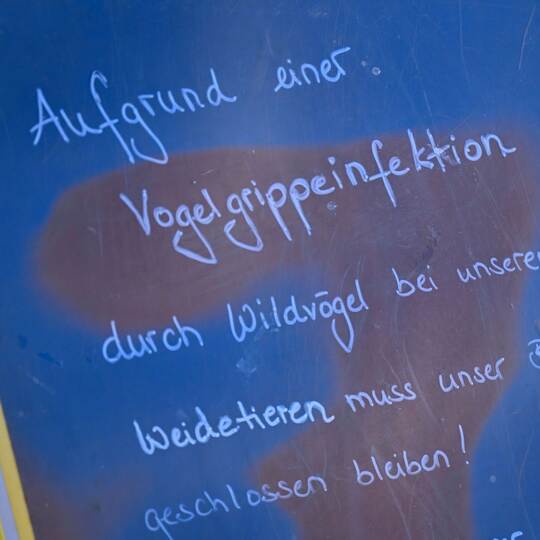 Aufgrund einer
Vogelgrippeinfektion
durch Wildvögel bei unseren
Weidetieren muss unser
geschlossen bleiben!